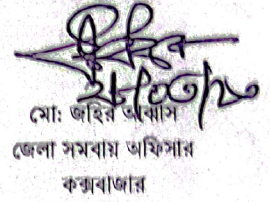 মো: জহির আব্বাস
জেলা সমবায় অফিসার
কক্সবাজার